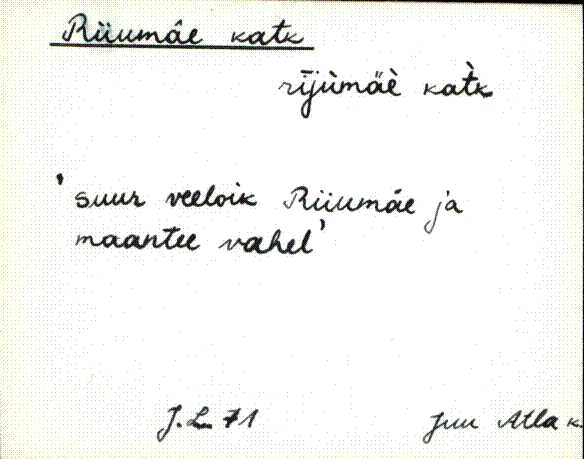 Riiumäe katk
rījùmäè kat̀k
'suur veeloik Riiumäe ja
maantee vahel'
J.L. 71 Juu Atla k.